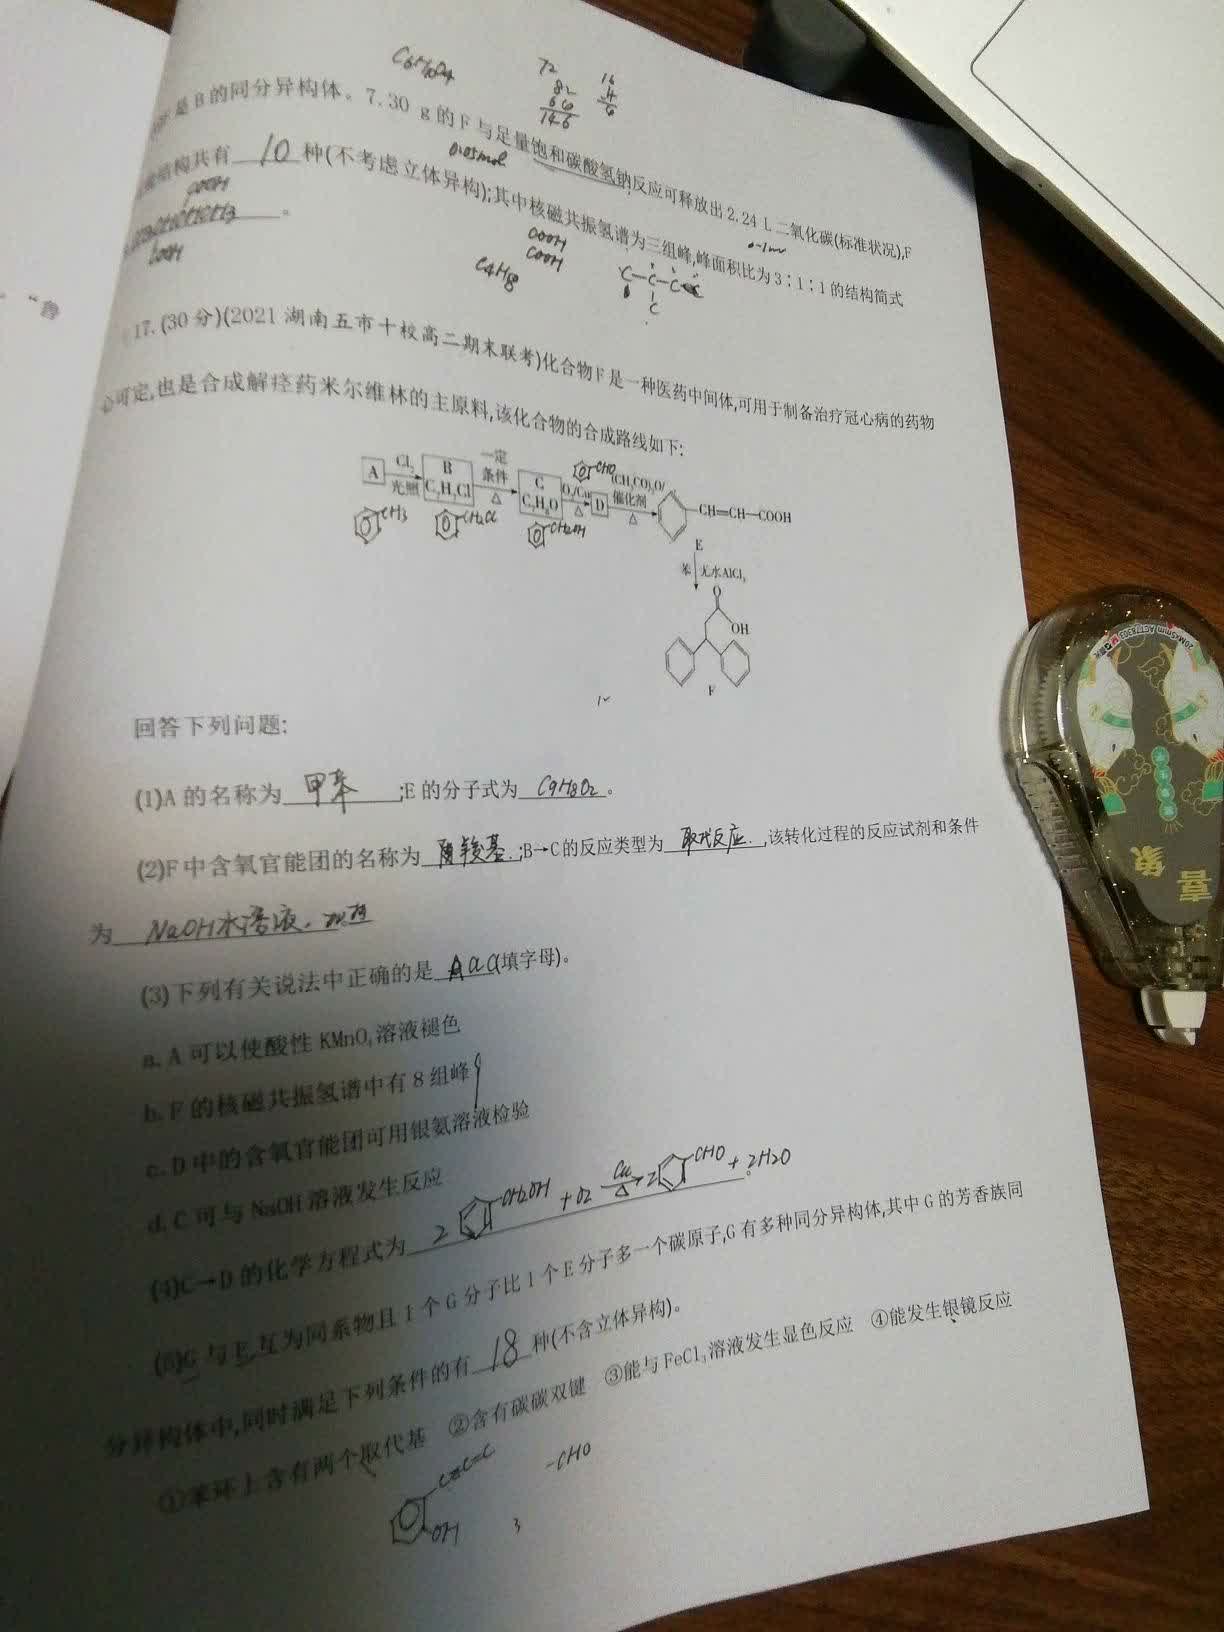 C6H10O4
72
82
64
146
16
4
6
是B的同分异构体。7.30 g的F与足量饱和碳酸氢钠反应可释放出2.24 L二氧化碳(标准状况),F
0.05mol
结构共有 10 种(不考虑立体异构);其中核磁共振氢谱为三组峰,峰面积比为3∶1∶1的结构简式
COOH
COOH
COOH
COOH
C4H8
17.(30分)(2021湖南五市十校高二期末联考)化合物F是一种医药中间体,可用于制备治疗冠心病的药物
心可定,也是合成解痉药米尔维林的主原料,该化合物的合成路线如下:
A Cl2 光照 B C7H7Cl 一定条件 △ C C7H8O O2/Cu △ D (CH3CO)2O/催化剂 △ CH=CH—COOH
CHO
CH3 CH2Cl CH2OH
E
苯 无水AlCl3
O
OH
F
回答下列问题:
(1)A的名称为 甲苯 ;E的分子式为 C9H8O2 。
(2)F中含氧官能团的名称为 羧基 ;B→C的反应类型为 取代反应 ,该转化过程的反应试剂和条件
为 NaOH水溶液、加热
(3)下列有关说法中正确的是 ac (填字母)。
a. A可以使酸性KMnO4溶液褪色
b. F的核磁共振氢谱中有8组峰
c. D中的含氧官能团可用银氨溶液检验
d. C可与NaOH溶液发生反应
(4)C→D的化学方程式为 2 CH2OH + O2 Cu △ → 2 CHO + 2H2O 。
(5)G与E互为同系物且1个G分子比1个E分子多一个碳原子,G有多种同分异构体,其中G的芳香族同
分异构体中,同时满足下列条件的有 18 种(不含立体异构)。
①苯环上含有两个取代基 ②含有碳碳双键 ③能与FeCl3溶液发生显色反应 ④能发生银镜反应
C=C-C
-CHO
OH
3